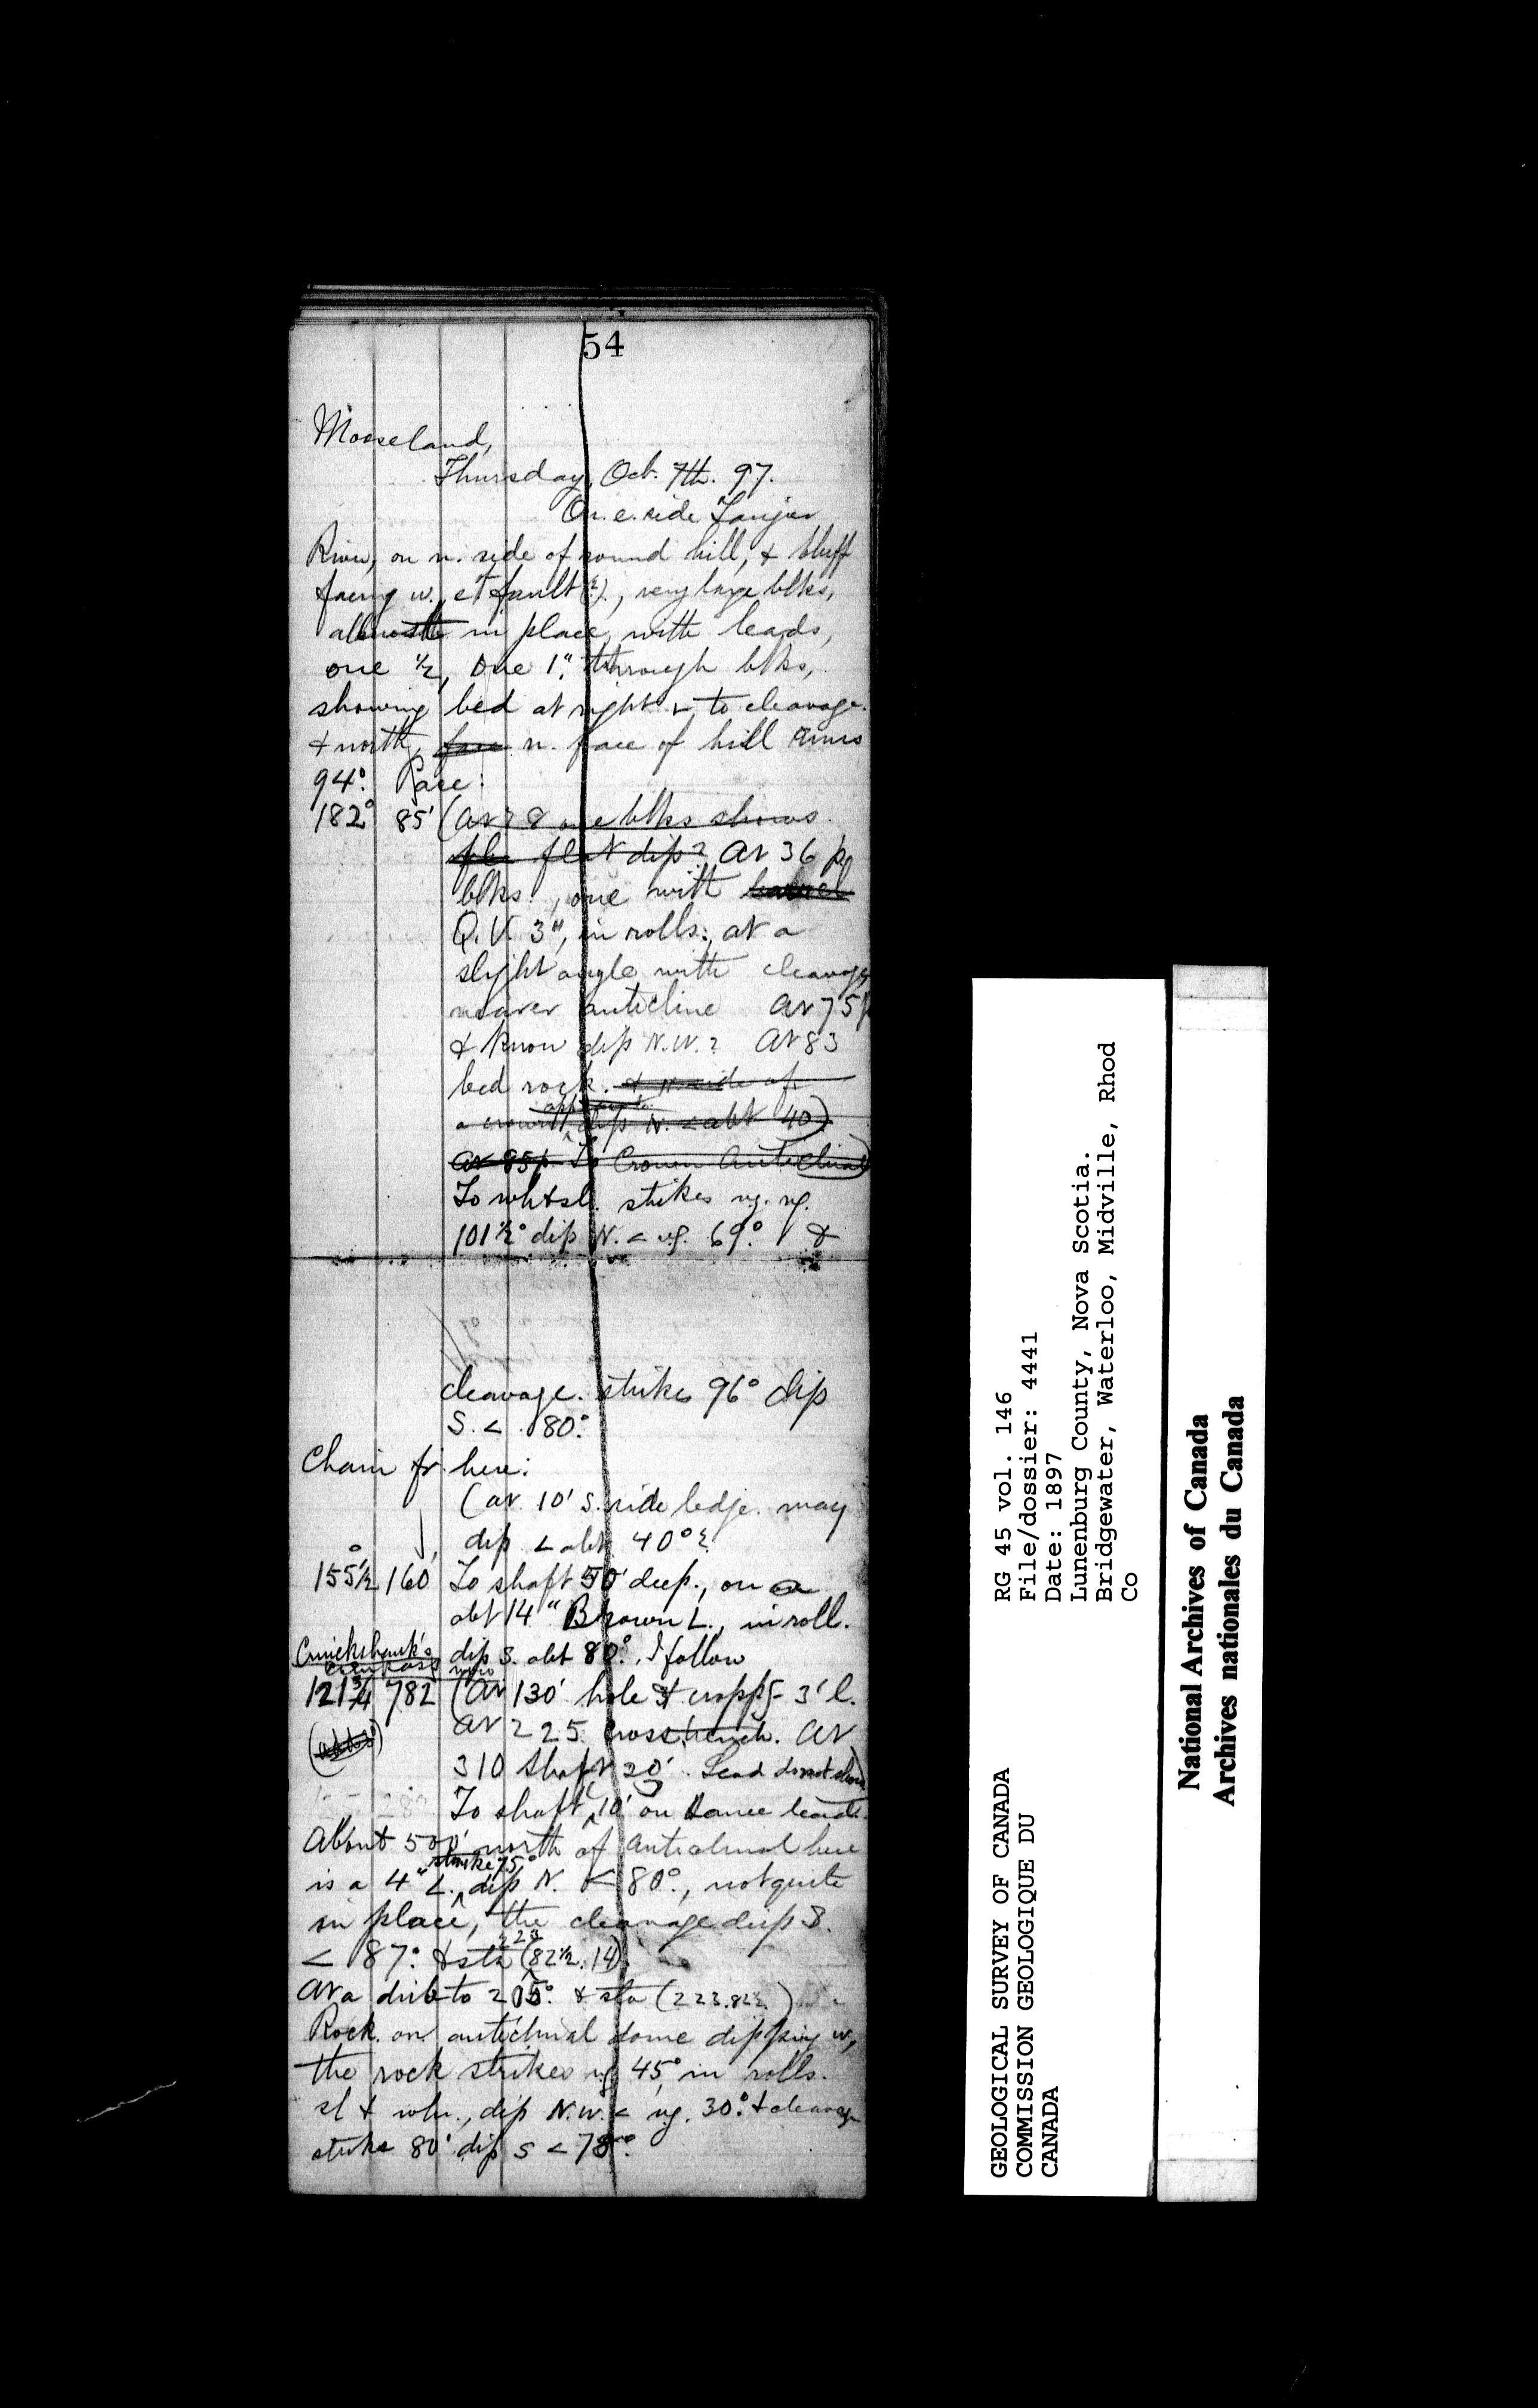 54
Mooseland,
Thursday, Oct. 7th. 97.
On e. side Tangier
River, on n. side of round hill, & bluff
facing w., et fault (?), very large blks,
almost in place, with leads,
one ½, one 1". through blks,
showing bed at right to cleavage.
& north, face n. face of hill runs
94°. Pace:
182° 85' (At 28 one blks shows
flat dip? At 36 p
blks., one with
Q.V. 3", in rolls, at a
slight angle with cleavage,
nearer anticline At 75 p
& know dip N.W.? At 83
bed rock. & N. side of
a crown dip N. < abt 40)
At 85 p To Crown Anticlinal)
To wh & sl. strikes
101½° dip N. < 69°. &
cleavage. strikes 96° dip
S. < 80°.
Chain fr. here:
(at 10' s. side ledge may
dip < abt 40°?
155½° 160 To shaft 50' deep., on a
abt 14" Brown L., in roll.
Cruickshank's dip S. abt 80°. I follow
compass now
121¾ 782 (At 130' hole & 3' l.
At 225 cross trench. At
310 shaft 20'. Lead do not show
To shaft 10' on same lead.
About 500' north of anticlinal here
strike 75°
is a 4" L. dip N. < 80°., not quite
in place, the cleavage dip S.
< 87°. & sta (82½.14)
223
At a due to 205°. & sta (223.82½)
Rock on anticlinal dome dipping w,
the rock strikes 45° in rolls.
sl & wh., dip N.W. < 30°. & cleavage
strike 80° dip S < 78°.
RG 45 vol. 146
File/dossier: 4441
Date: 1897
Lunenburg County, Nova Scotia.
Bridgewater, Waterloo, Midville, Rhod
Co
GEOLOGICAL SURVEY OF CANADA
COMMISSION GEOLOGIQUE DU
CANADA
National Archives of Canada
Archives nationales du Canada